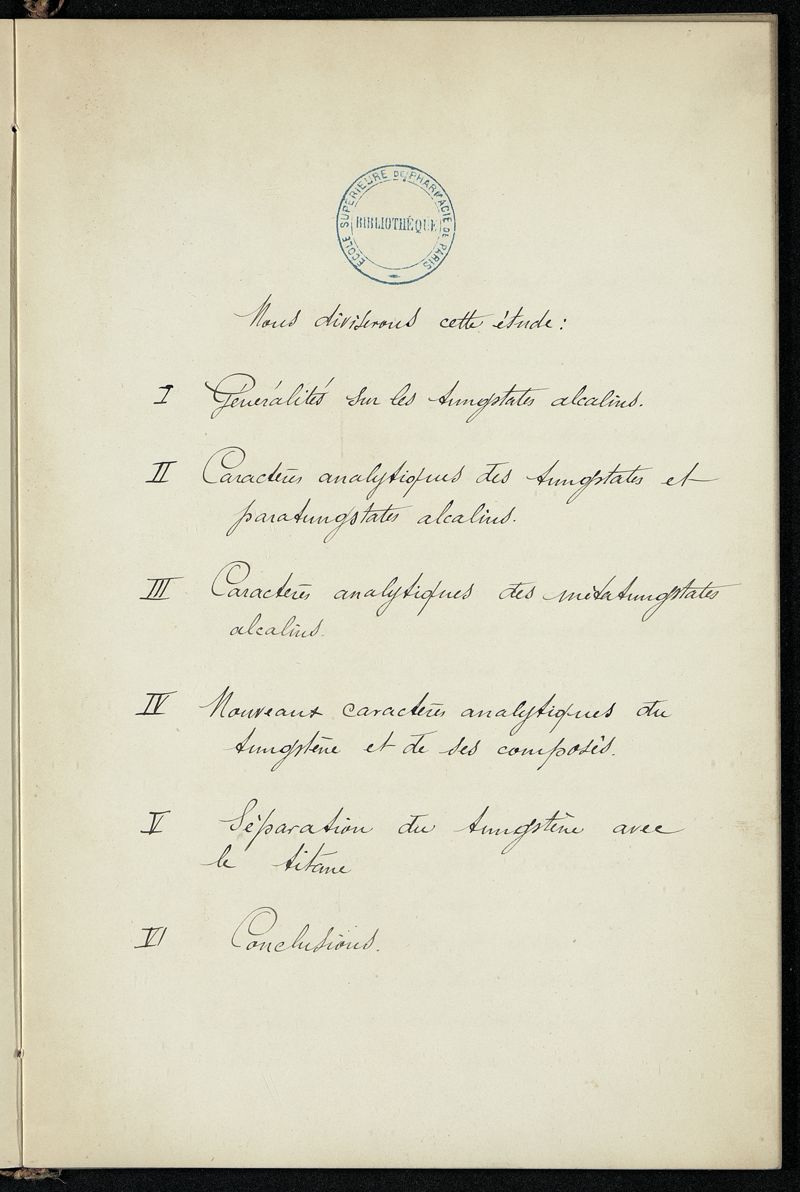 ÉCOLE SUPÉRIEURE DE PHARMACIE DE PARIS
BIBLIOTHÉQUE
Nous diviserons cette étude :
I Généralités sur les tungstates alcalins.
II Caractères analytiques des tungstates et
paratungstates alcalins.
III Caractères analytiques des métatungstates
alcalins.
IV Nouveaux caractères analytiques du
tungstène et de ses composés.
V Séparation du tungstène avec
le titane
VI Conclusions.